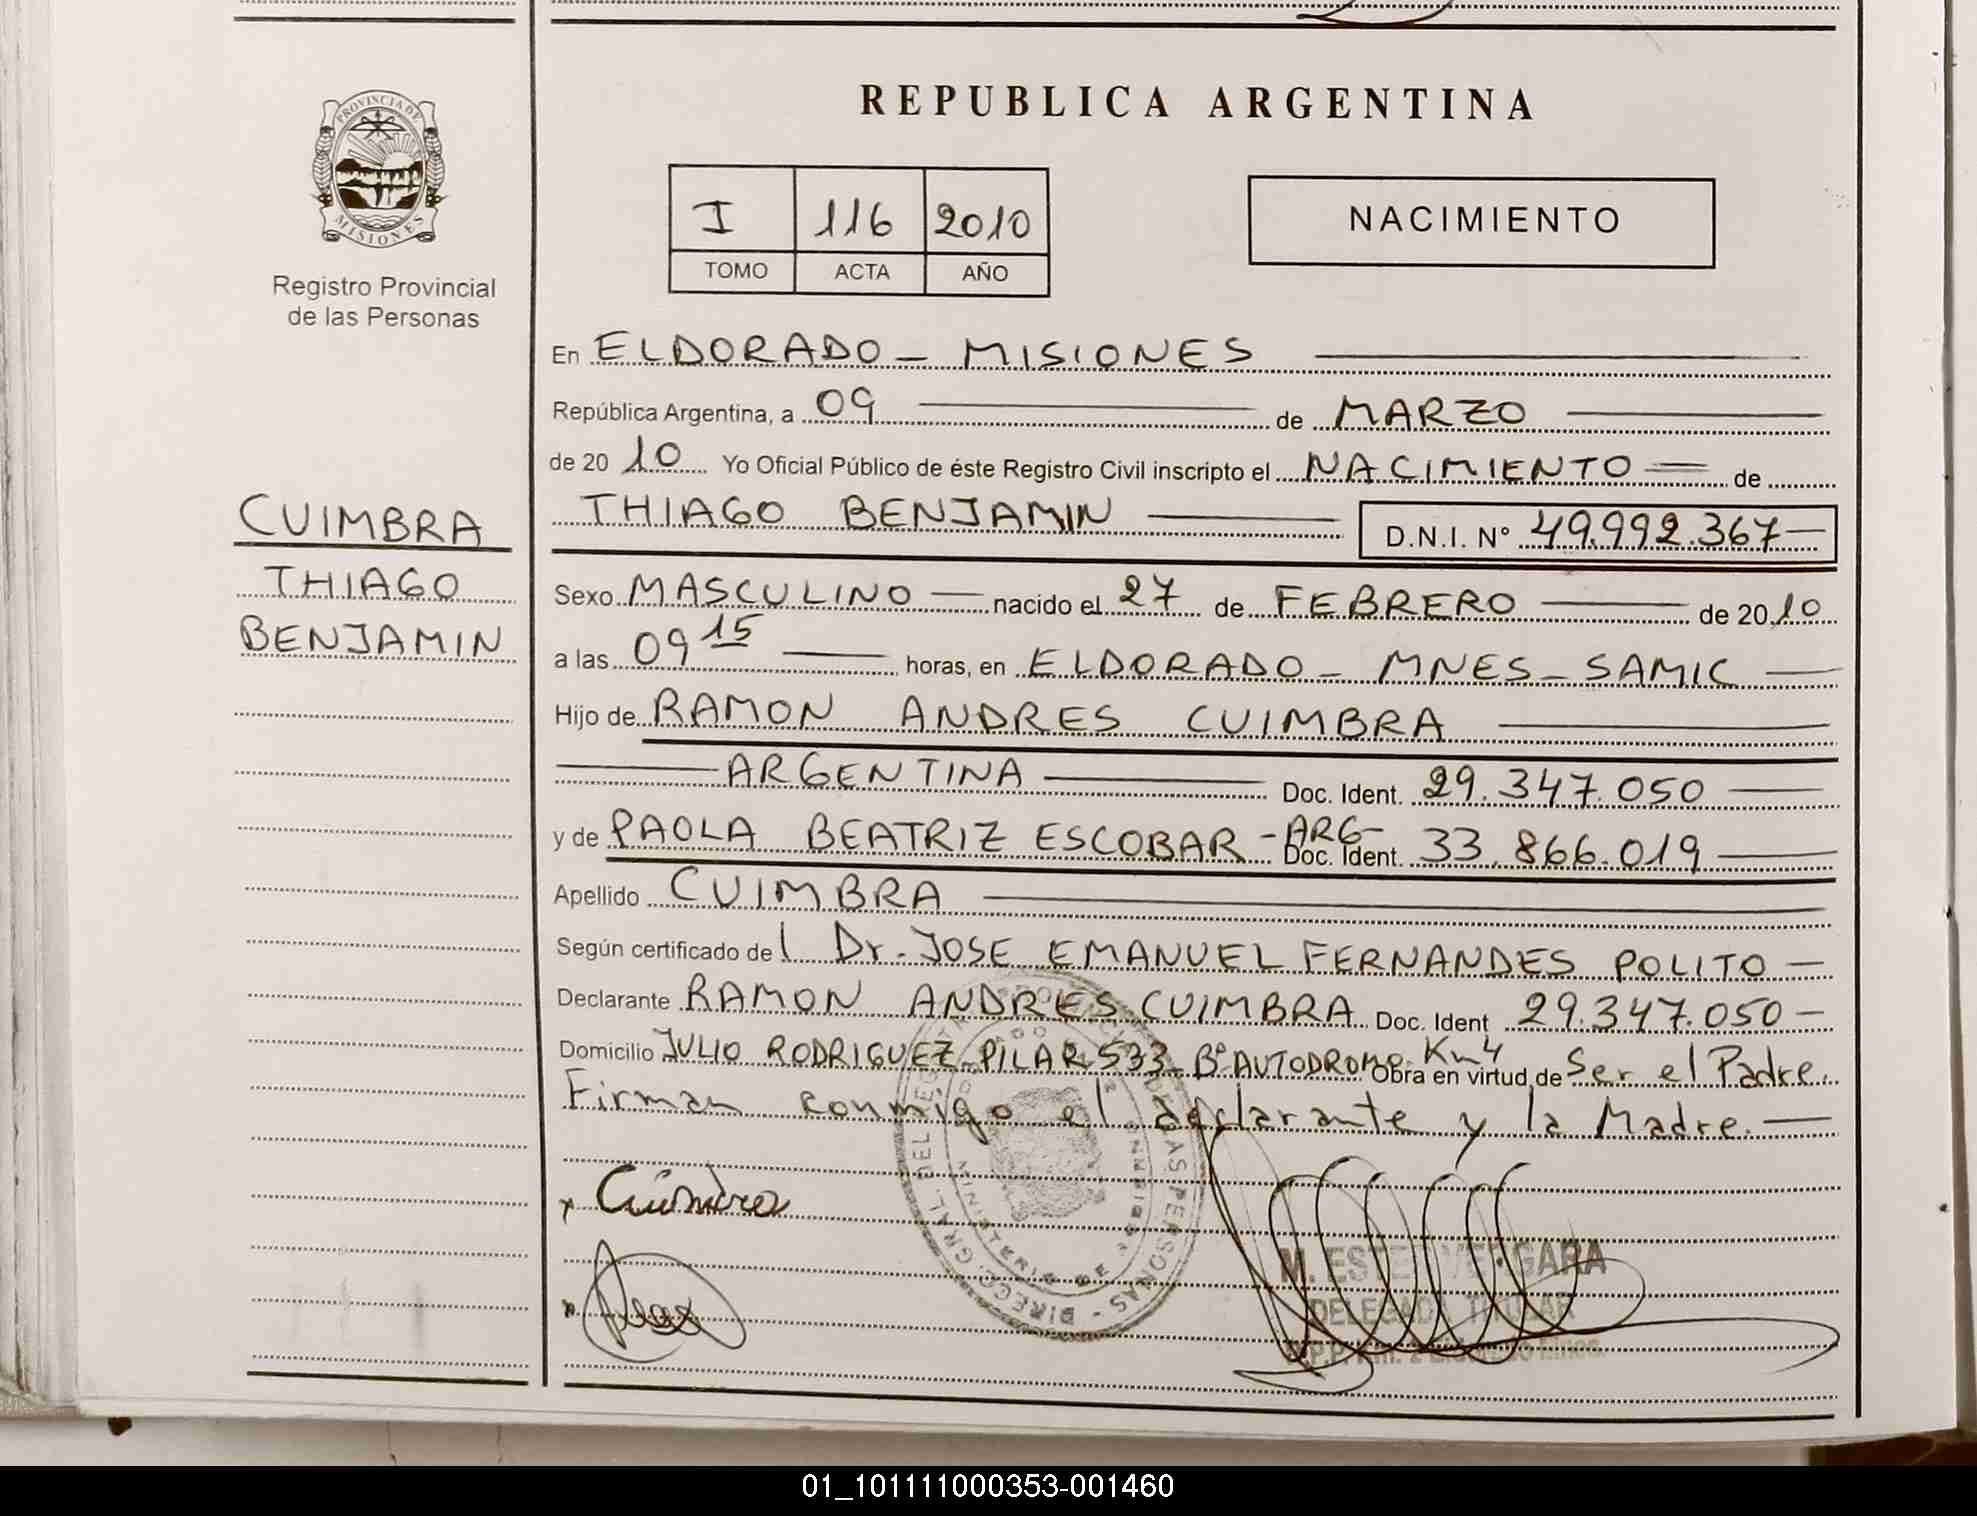 REPUBLICA ARGENTINA
PROVINCIA DE
MISIONES
Registro Provincial
de las Personas
I 116 2010
TOMO ACTA AÑO
NACIMIENTO
En ELDORADO - MISIONES
República Argentina, a 09 de MARZO
de 20 10 Yo Oficial Público de éste Registro Civil inscripto el NACIMIENTO de
THIAGO BENJAMIN D.N.I. Nº 49.992.367
CUIMBRA
THIAGO
BENJAMIN
Sexo MASCULINO nacido el 27 de FEBRERO de 20 10
a las 09 15 horas, en ELDORADO - MNES - SAMIC
Hijo de RAMON ANDRES CUIMBRA
ARGENTINA Doc. Ident. 29.347.050
y de PAOLA BEATRIZ ESCOBAR - ARG - Doc. Ident. 33.866.019
Apellido CUIMBRA
Según certificado de l Dr. JOSE EMANUEL FERNANDES POLITO
Declarante RAMON ANDRES CUIMBRA Doc. Ident 29.347.050
Domicilio JULIO RODRIGUEZ - PILAR 533 - Bº AUTODROMO Km 4 Obra en virtud de Ser el Padre.
Firman conmigo el declarante y la Madre.
Cuimbra
M. ESTER VERGARA
DELEGADA TITULAR
01_101111000353-001460